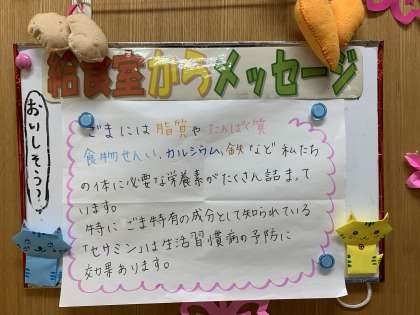 給食室からメッセージ
おいしそう?
ごまには脂質やたんぱく質
食物せんい、カルシウム、鉄など私たち
の体に必要な栄養素がたくさん詰まって
います。
特にごま特有の成分として知られている
「セサミン」は生活習慣病の予防に
効果あります。